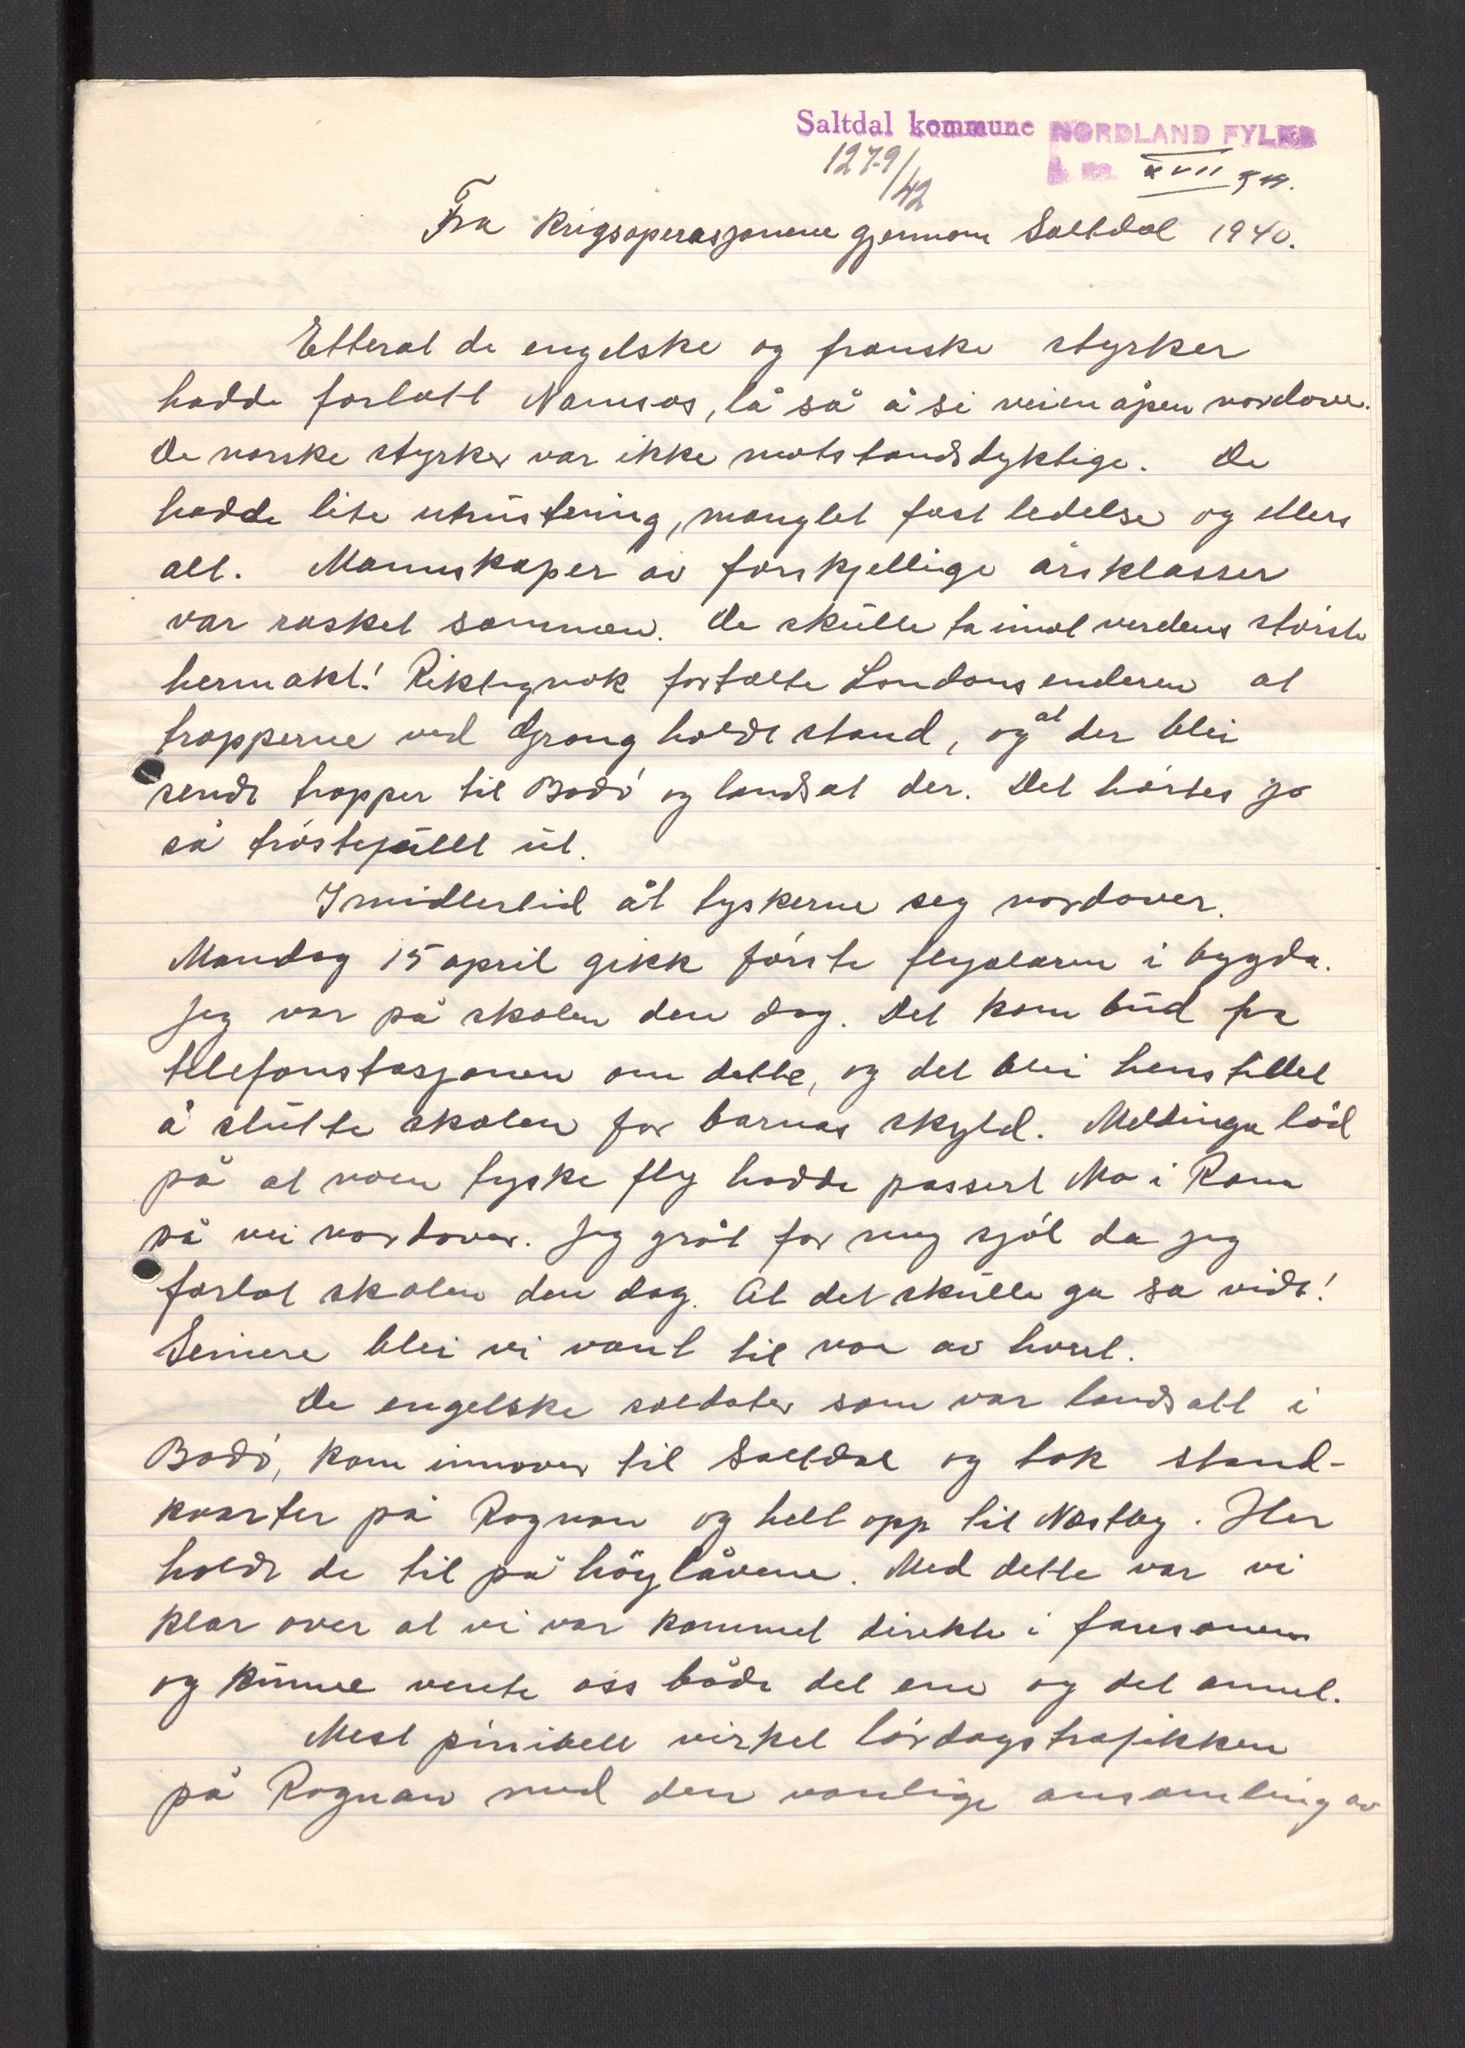 Saltdal kommune NORDLAND FYLKE
1279/42 XVII
Fra krigsoperasjonene gjennom Saltdal 1940.
Etterat de engelske og franske styrker
hadde forlatt Namsos, lå så å si veien åpen nordover.
De norske styrker var ikke motstandsdyktige. De
hadde lite utrustning, manglet fast ledelse og ellers
alt. Mannskaper av forskjellige årsklasser
var rasket sammen. De skulle ta imot verdens største
hermakt! Riktignok fortalte Londonsenderen at
tropperne ved Grong holdt stand, og at der blei
sendt tropper til Bodø og landsat der. Det hørtes jo
så trøstefullt ut.
Imidlertid åt tyskerne seg nordover.
Mandag 15 april gikk første flyalarm i bygda.
Jeg var på skolen den dag. Det kom bud fra
telefonstasjonen om dette, og det blei henstillet
å slutte skolen for barnas skyld. Meldinga lød
på at noen tyske fly hadde passert Mo i Rana
på vei nordover. Jeg gråt for meg sjøl da jeg
forlot skolen den dag. At det skulle ga sa vidt!
Seinere blei vi vant til noe av hvert.
De engelske soldater som var landsatt i
Bodø, kom innover til Saltdal og tok stand-
kvarter på Rognan og helt opp til Nestby. Her
holdt de til på høylåvene. Med dette var vi
klar over at vi var kommet direkte i faresonen
og kunne vente oss både det ene og det annet.
Mest pinibelt virket lørdagstrafikken
på Rognan med den vanlige ansamling av